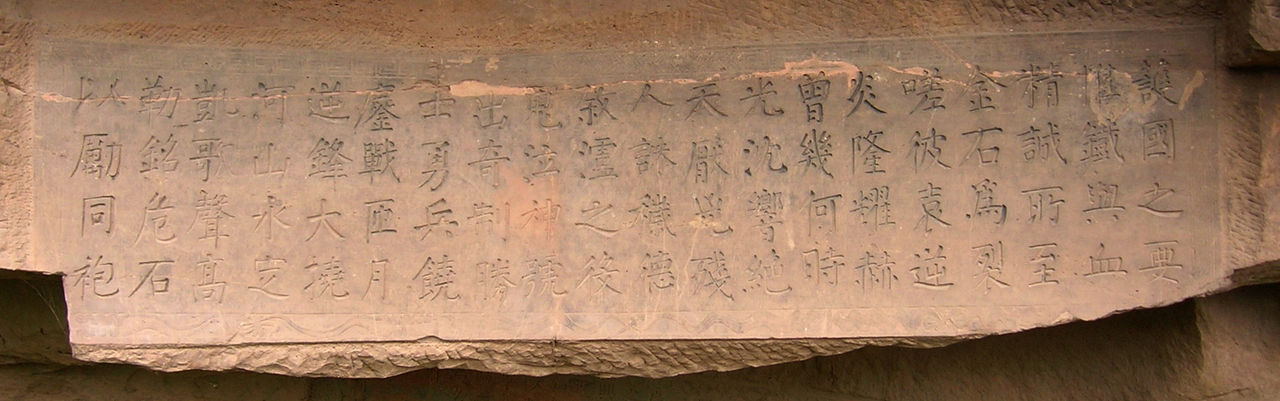 護國之要
惟鐵與血
精誠所至
金石爲裂
嗟彼袁逆
炎隆耀赫
曾幾何時
光沈響絕
天厭兇殘
人誅穢德
敘瀘之役
鬼泣神號
出奇制勝
士勇兵饒
鏖戰匝月
逆鋒大撓
河山永定
凱歌聲高
勒銘危石
以勵同袍